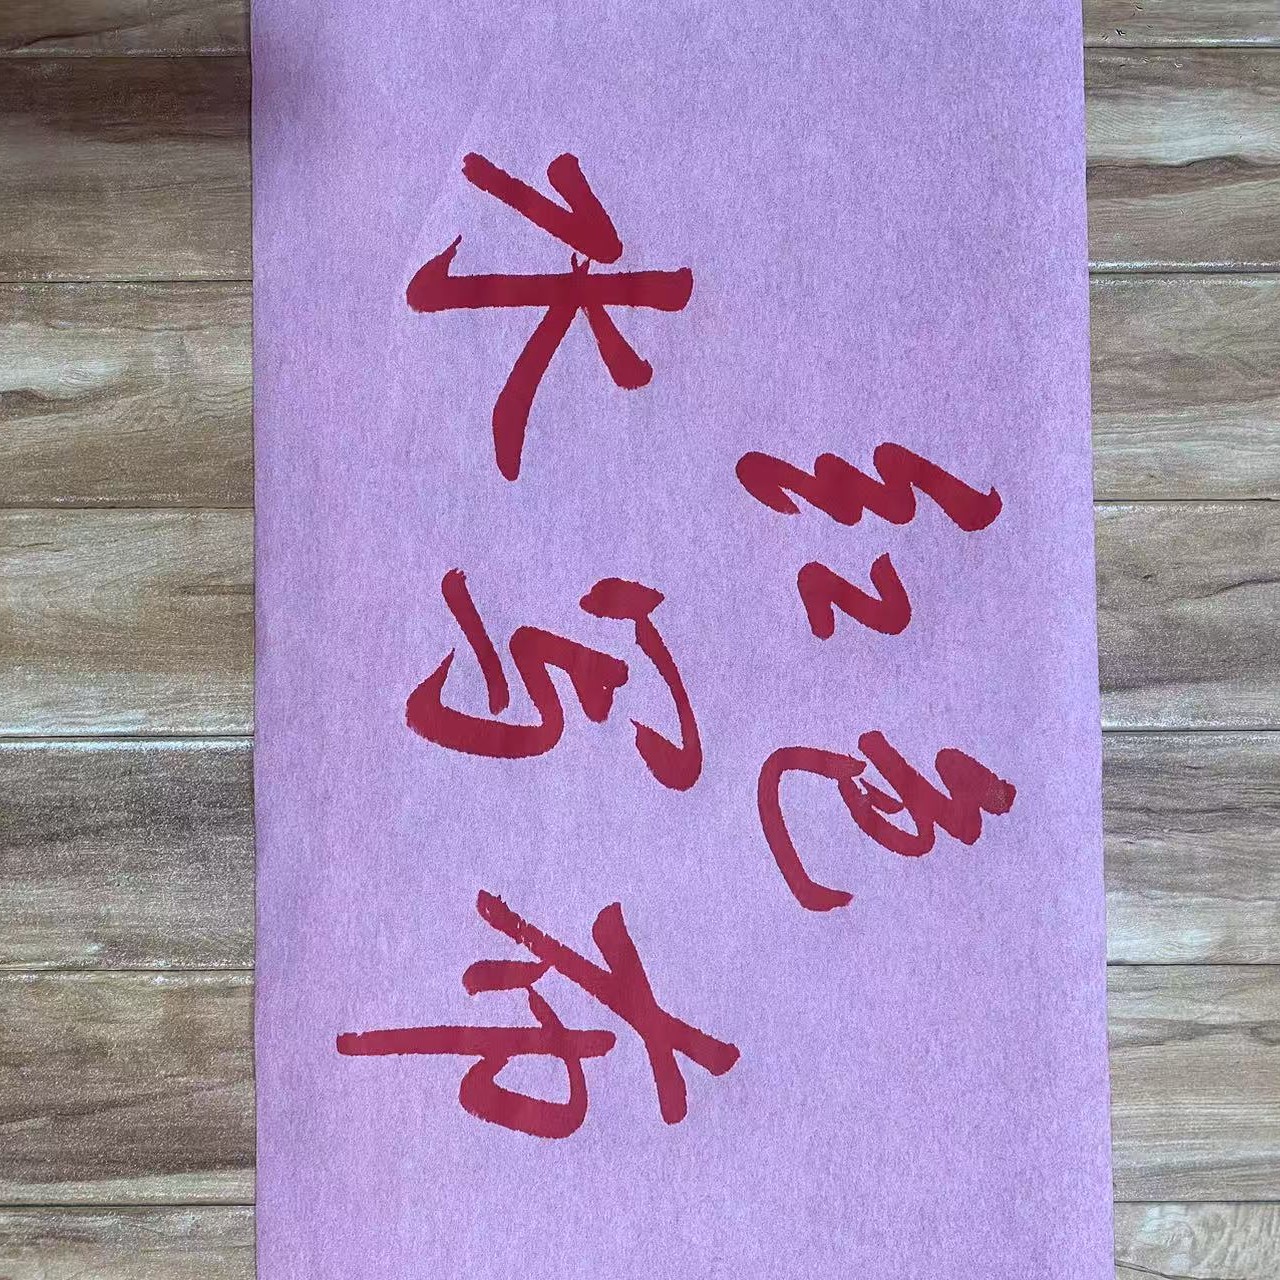 红色
水写布